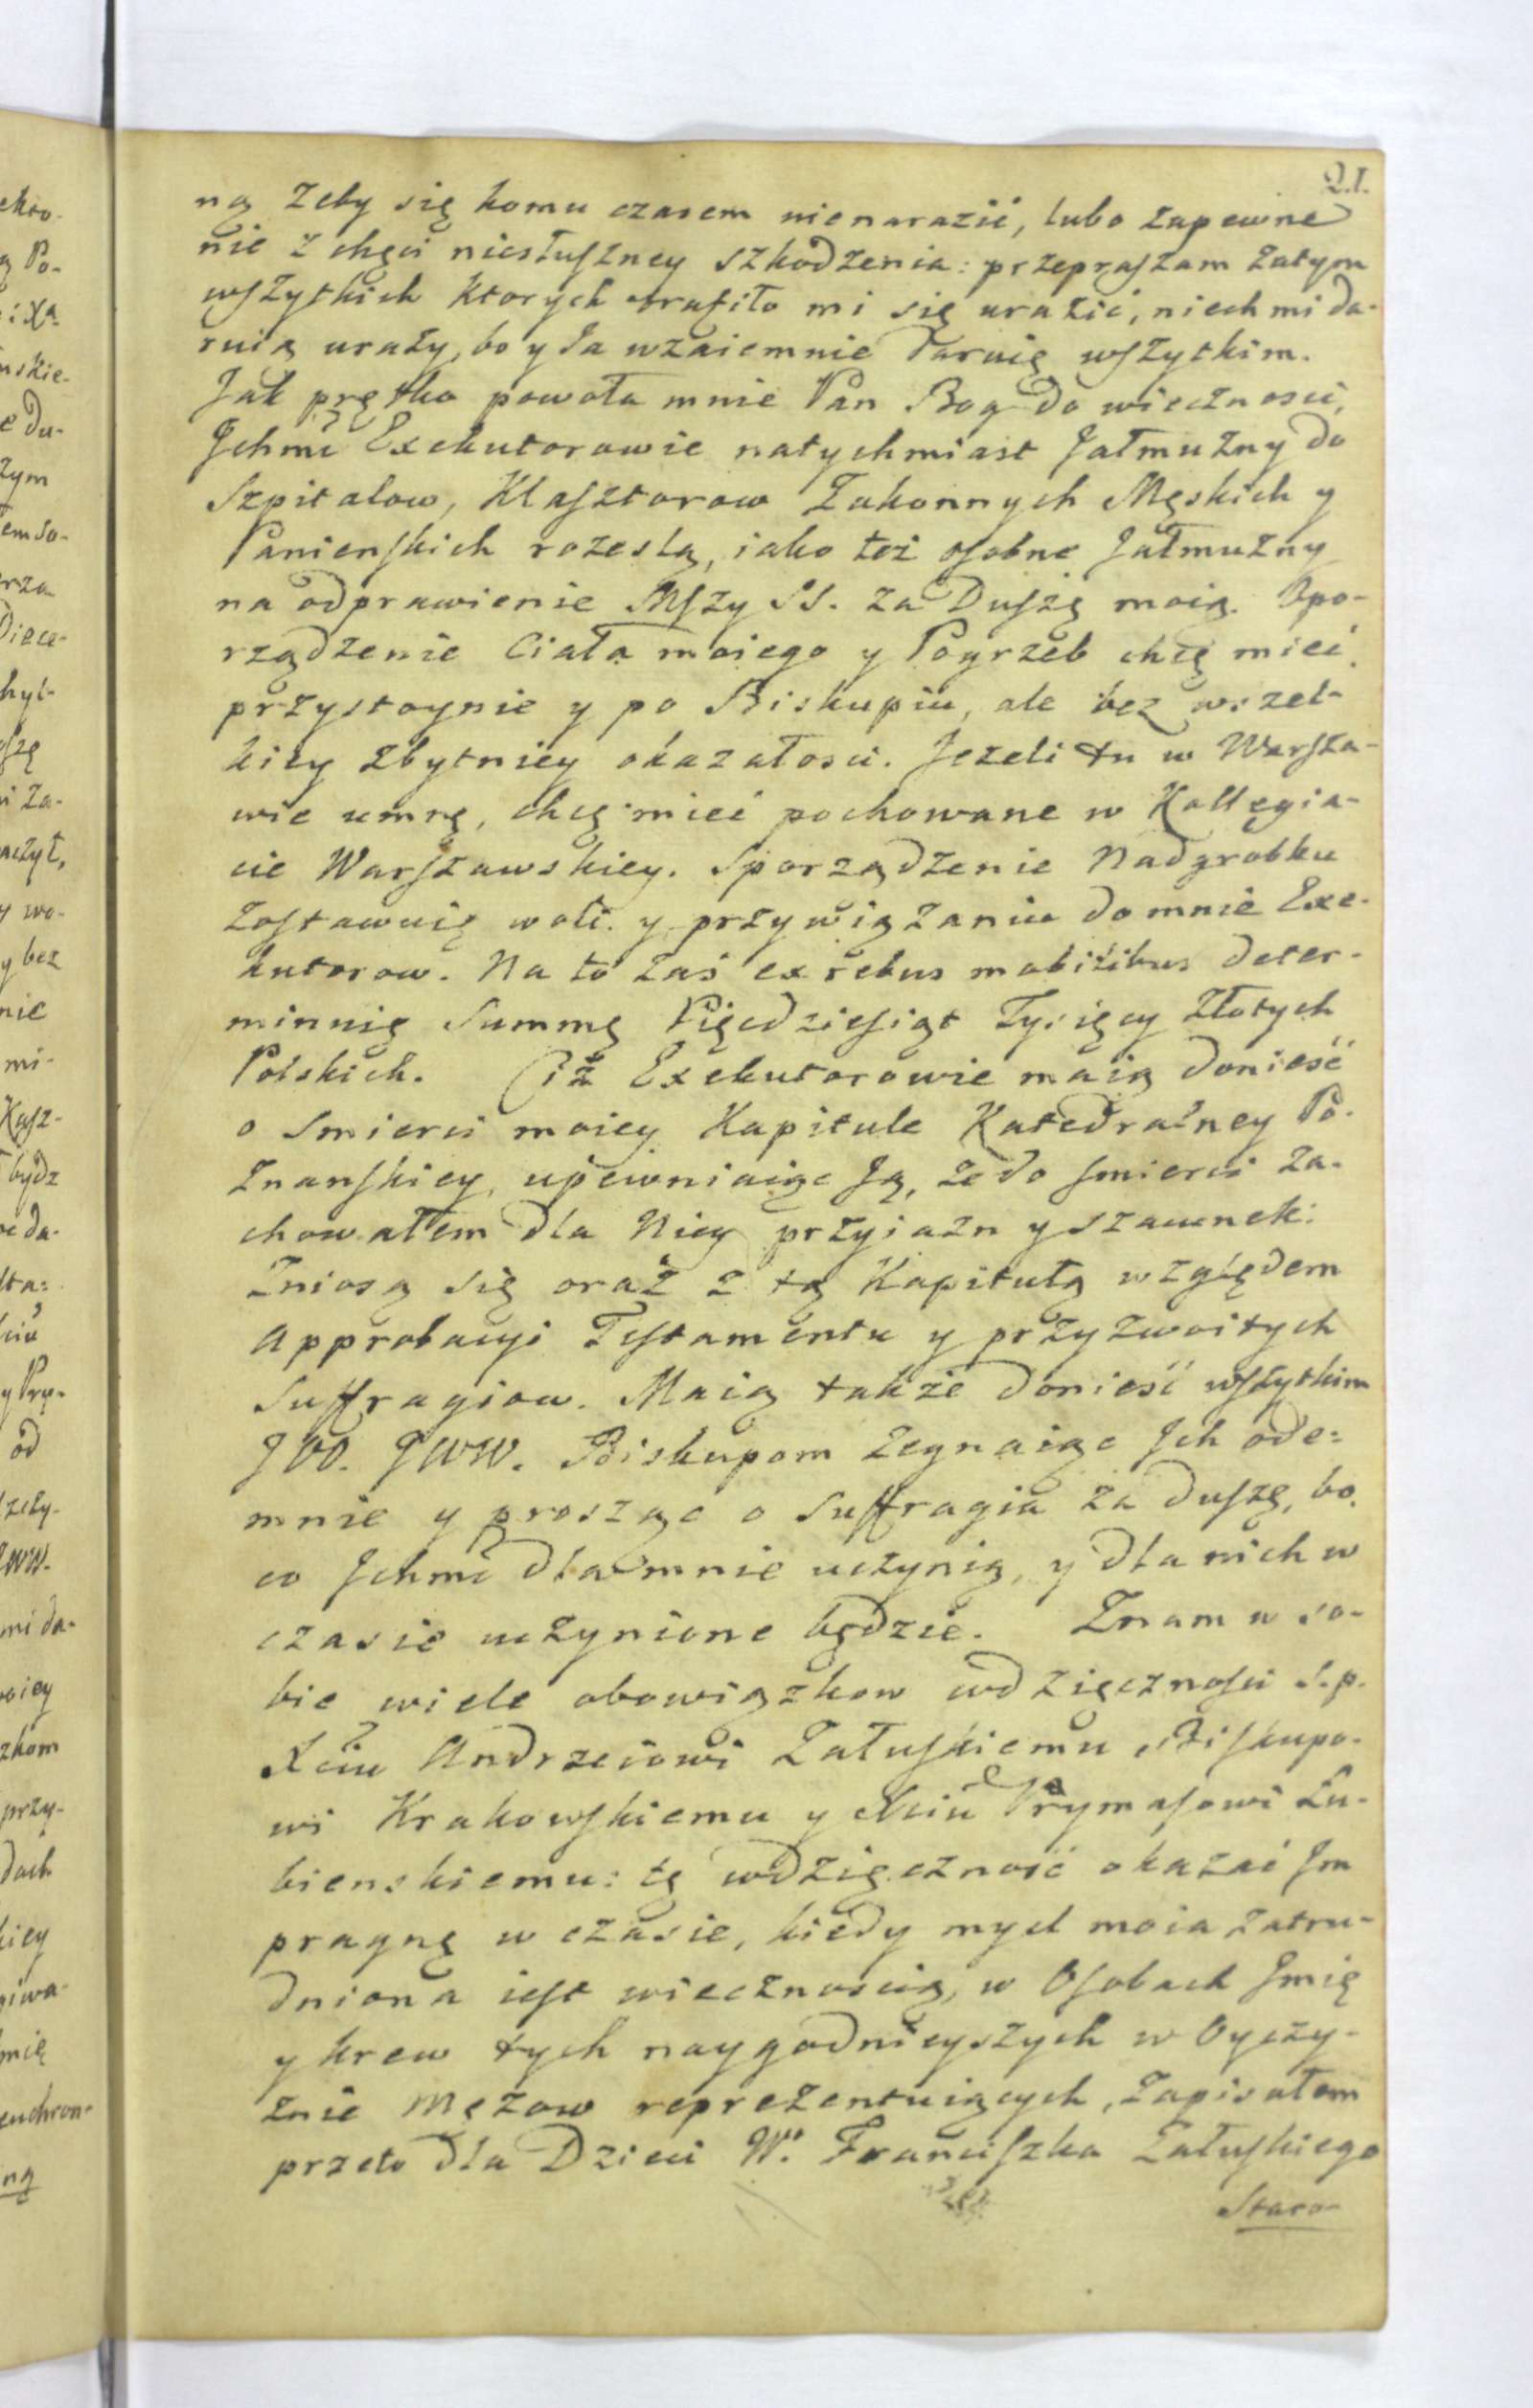 21.
ną żeby się komu czasem nienarazić, lubo zapewne
nie z chęci niesłuszney szkodzenia: przepraszam zatym
wszytkich ktorych trafiło mi się urazić, niech mi da-
ruią urazy, bo y Ja wzaiemnie daruię wszytkim.
Jak prętko powoła mnie Pan Bog do wiecznosci,
Jchmć Exekutorowie natychmiast Jałmużny do
Szpitalow, Klasztorow Zakonnych Męskich y
Panienskich rozeslą, iako też osobne Jałmużny
na odprawienie Mszy SS. za Duszę moię. Spo-
rządzenie Ciała moiego y Pogrzeb chcę mieć
przystoynie y po Biskupiu, ale bez wszel-
kiey zbytniey okazałosci. Jeżeli tu w Warsza-
wie umrę, chcę mieć pochowane w Kollegia-
cie Warszawskiey. Sporządzenie Nadgrobku
zostawuię woli y przywiązaniu do mnie Exe-
kutorow. Na to zaś ex rebus mobilibus deter-
minuię Summę Pięcdziesiąt Tysięcy Złotych
Polskich. Ciż Exekutorowie maią doniesć
o Smierci moiey Kapitule Katedralney Po-
znanskiey, upewniaiąc Ją, że do smierci za-
chowałem dla Niey przyiazn y szacunek:
Zniosą się oraz z tą Kapitułą względem
Approbacyi Testamentu y przyzwoitych
Suffragiow. Maią także doniesć wszytkim
JOO. JWW. Biskupom żegnaiąc Jch ode-
mnie y prosząc o Suffragia za duszę, bo
co Jchmć dla mnie uczynią, y dla nich w
czasie uczynione będzie. Znam w so-
bie wiele obowiązkow wdzięcznosci S.p.
Xciu Andrzeiowi Załuskiemu, Biskupo-
wi Krakowskiemu y Xciu Prymasowi Łu-
bienskiemu: tę wdzięczność okazać Jm
pragnę w czasie, kiedy mysl moia zatru-
dniona iest wiecznoscią, w Osobach Jmię
y krew tych naygodnieyszych w Oyczy-
znie Mężow reprezentuiących, zapisałem
przeto dla Dzieci W. Franciszka Załuskiego
Staro-